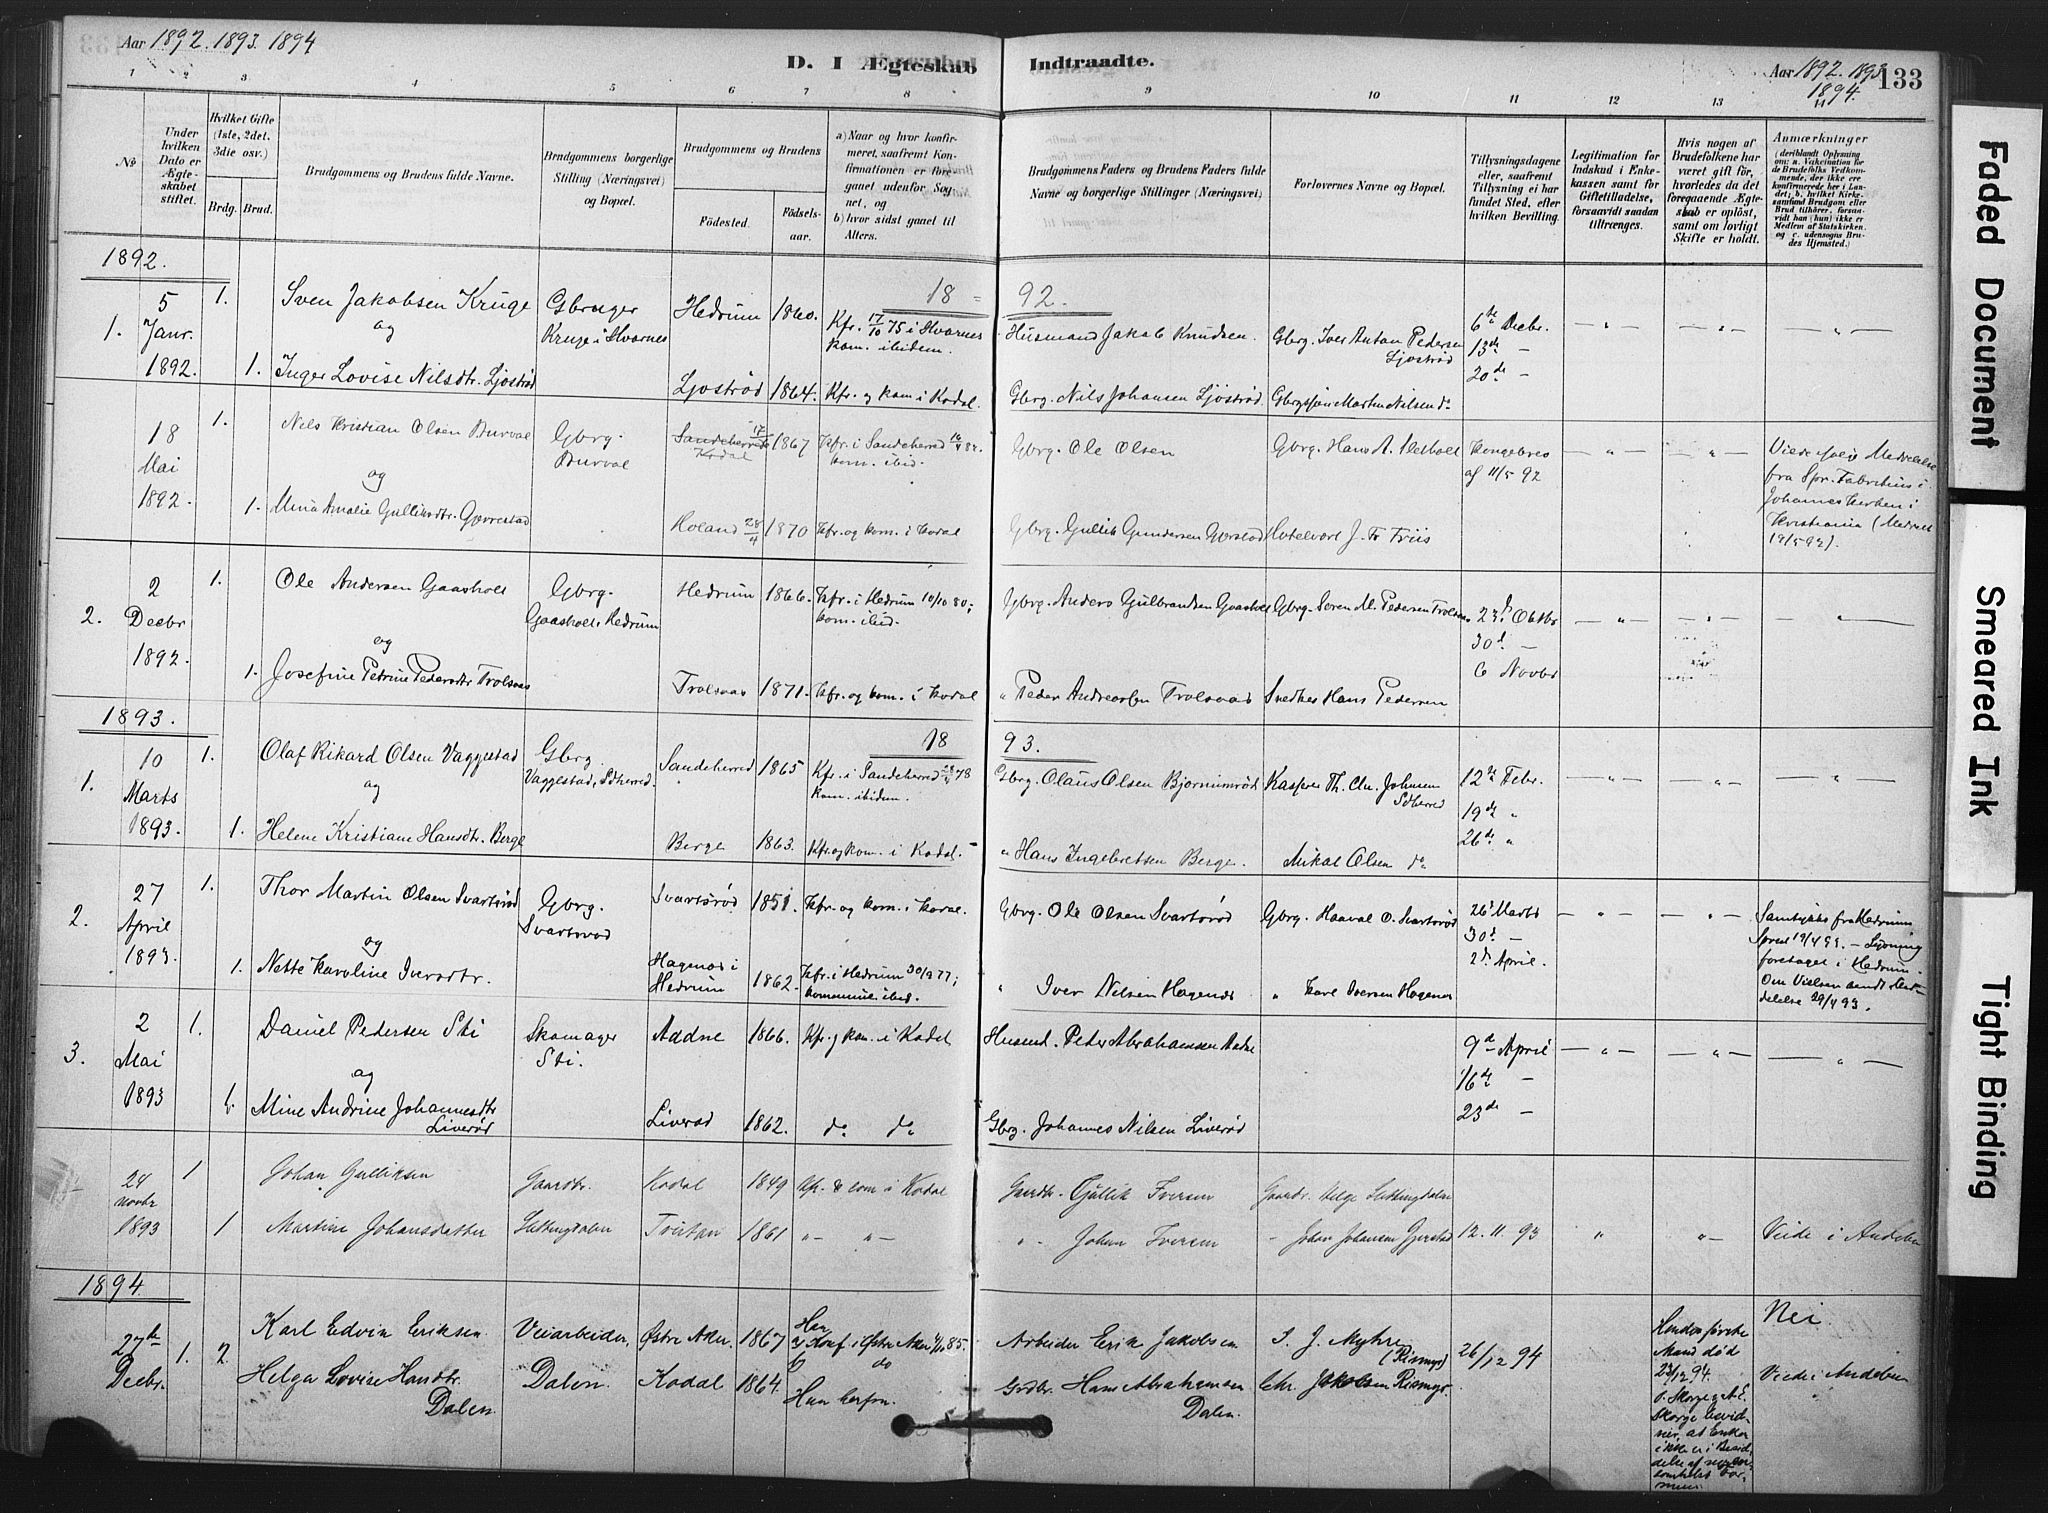 Aar 1892. 1893. 1894
D. I Ægteskab Indtraadte.
Aar 1892. 1893 1894. 133
1 2 3 4 5 6 7 8 9 10 11 12 13 14
No
Under hvilken Dato er Ægteskabet stiftet.
Hvilket Gifte (1ste, 2det, 3die osv.)
Brdg. Brud.
Brudgommens og Brudens fulde Navne.
Brudgommens borgerlige Stilling (Næringsvei) og Bopæl.
Brudgommens og Brudens
Födested. Födselsaar.
a) Naar og hvor konfirmeret, saafremt Konfirmationen er foregaaet udenfor Sognet, og
b) hvor sidst gaaet til Alters.
Brudgommens Faders og Brudens Faders fulde Navne og borgerlige Stillinger (Næringsvei)
Forlovernes Navne og Bopæl.
Tillysningsdagene eller, saafremt Tillysning ei har fundet Sted, efter hvilken Bevilling.
Legitimation for Indskud i Enkekassen samt for Giftetilladelse, forsaavidt saadan tiltrænges.
Hvis nogen af Brudefolkene har været gift før, hvorledes da det foregaaende Ægteskab er oplöst, samt om lovligt Skifte er holdt.
Anmærkninger
(deriblandt Oplysning om: a. Vakcination for de Brudefolks Vedkommende, der ikke ere konfirmerede her i Landet; b. hvilket Kirkesamfund Brudgom eller Brud tilhörer, forsaavidt han (hun) ikke er Medlem af Statskirken, og c. udensogns Brudes Hjemsted.)
1892.
18 = 92.
1. 5 Janr. 1892. 1. Sven Jakobsen Kruge Gbruger Kruge i Hvarnes Hedrum 1860. Kfr. 17/10 75 i Hvarnes kom. ibidem. Husmand Jakob Knudsen. Gbrg. Iver Anton Pedersen Ljostrød 6te Decbr. 13de - 20de - — " — — " — — " —
og
1. Inger Lovise Nilsdtr. Ljøstrød Ljostrød 1864. Kfr. og kom i Kodal. Gbrg. Nils Johansen Ljöstrød. Gbrgssøn Martin Nilsen do
18 Mai 1892. 1. Nils Kristian Olsen Burval Gbrg. Burval Sandeherred Kodal 17/ 1867 Kfr. i Sandeherred kom. ibid. Gbrg. Ole Olsen Gbrg. Hans A. Kongebrev af 11/5 92 — " — — " — Viede ifølge Meddelelse fra Spr. Fabritius i Johanneskirken i Kristiania (Medd. 19/5 92).
og
1. Mina Amalie Gulliksdtr. Gjerrestad Holand 28/4 1870 Kfr. og kom. i Kodal Gbrg. Gullik Gundersen Gjerstad Hotelvært J. Fr Friis
2. 2 Decbr 1892. 1. Ole Andersen Gaasholt Gbrg. Gaasholt i Hedrum Hedrum 1866. Kfr. i Hedrum 10/10 80; kom. ibid. Gbrg. Anders Gulbrandsen Gaasholt Gbrg. Soren M. Pedersen Trolsaas 23d Oktbr 30d - 6 Novbr — " — — " — — " —
og
1. Josefine Petrine Pedersdtr Trolsaas Trolsaas 1871. Kfr. og kom. i Kodal " Peder Andreassen Trolsaas Snedker Hans Pedersen
1893.
18 93.
1. 10 Marts 1893. 1. Olaf Rikard Olsen Vaggestad Gbrg. Vaggestad, Sdherred. Sandeherred 1865 Kfr. i Sandeherred 78 kom. ibidem. Gbrg. Olaus Olsen Bjørnumrød Kasper Th. Chr. Johnsen Sdherred 12te Febr. 19de " 26de " — " — — " — "
og
1. Helene Kristiane Hansdtr. Berge Berge 1863. Kfr. og kom. i Kodal. " Hans Ingebretsen Berge. Mikal Olsen do
2. 27 April 1893. 1. Thor Martin Olsen Svartsrød Gbrg. Svartsrød Svartsrød 1851. Kfr. og kom. i Kodal. Gbrg. Ole Olsen Svartsrød Gbrg. Haaval O. Svartsrød 26d Marts 30d - 2d April. — " — — " — fra Hedrum Sprest 19/4 93. - Lysning foretaget i Hedrum. Om Vielsen sendt Meddelelse 29/4 93.
og
1. Nette Karoline Iversdtr. Hagenes i Hedrum 1862. Kfr. i Hedrum 30/9 77; kommunic. ibid. " Iver Nilsen Hagenes " Karl Iversen Hagenes
3. 2 Mai 1893 1. Daniel Pedersen Sti Skomager Sti. Aadne 1866. Kfr. og kom. i Kodal Husmd. Peder Abrahamsen Aadne 9de April 16de - 23de - — " — — " — — " —
og
1. Mine Andrine Johannesdtr Liverød Liverød 1862. do do Gbrg. Johannes Nilsen Liverød
24 novbr 1893 1 Johan Gulliksen Gaardbr. Slettingdalen Kodal 1849 Kfr. & com i Kodal Gaardbr. Gullik Iversen Gaardbr. Helge Slettingdalen
1 Martine Johansdatter Trevtan 1861 " " " - Johan Iversen - Johan Johansen Gjerstad 12. 11. 93 " " Viede i Andebu
1894.
27de Decbr. 1. 2. Karl Edvin Eriksen Veiarbeider, Dalen. Østre Aker 1867 Han Konf i Østre Aker 85. do Arbeider Erik Jakobsen S. J. Myhre (Rismyr) 26/12 94 Nei
Helga Lovise Hansdtr. Dalen. Kodal 1864. Hun herfra. Grdbr. Hans Abrahamsen Dalen. Chr. Jakobsen Rismyr. Viede i Andebu
Hendes første Mand død 23/12 94.
Faded Document
Smeared Ink
Tight Binding